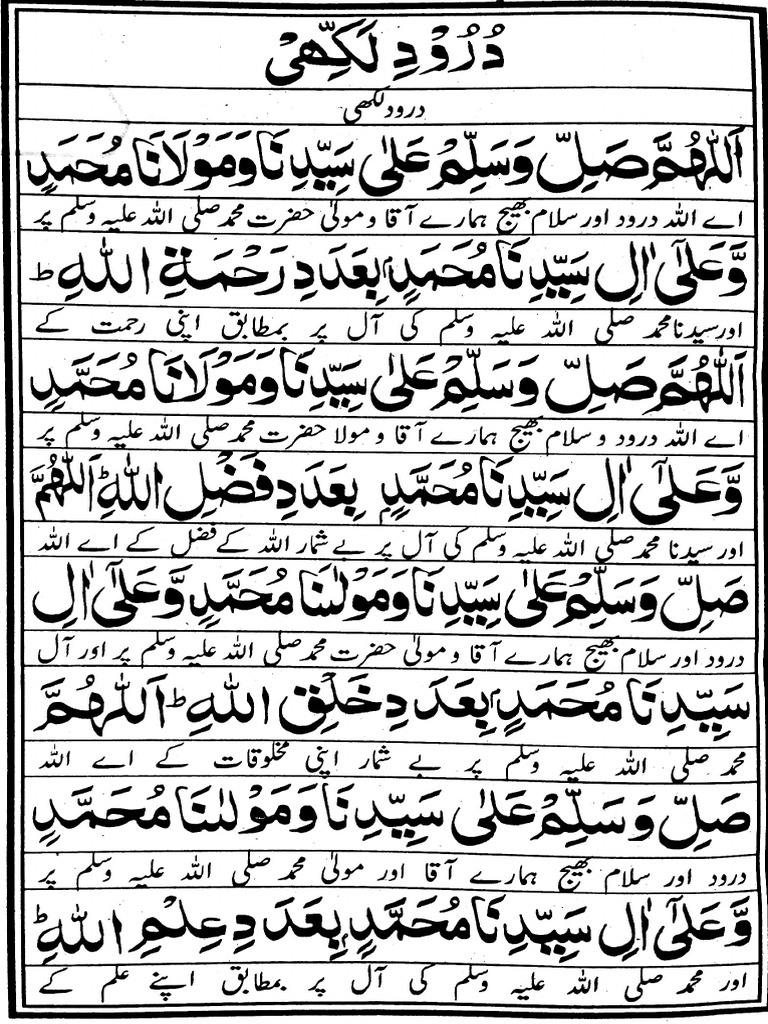 دُرُوْدِ لَكِّهیْ
درود لکھی
اَللّٰهُمَّ صَلِّ وَسَلِّمْ عَلٰى سَيِّدِنَا وَمَوْلَانَا مُحَمَّدٍ
اے اللہ درود اور سلام بھیج ہمارے آقا و مولیٰ حضرت محمد صلی اللہ علیہ وسلم پر
وَّعَلٰٓى اٰلِ سَيِّدِنَا مُحَمَّدٍۢ بِعَدَدِ رَحْمَةِ اللهِ ط
اور سیدنا محمد صلی اللہ علیہ وسلم کی آل پر بمطابق اپنی رحمت کے
اَللّٰهُمَّ صَلِّ وَسَلِّمْ عَلٰى سَيِّدِنَا وَمَوْلَانَا مُحَمَّدٍ
اے اللہ درود و سلام بھیج ہمارے آقا و مولا حضرت محمد صلی اللہ علیہ وسلم پر
وَّعَلٰٓى اٰلِ سَيِّدِنَا مُحَمَّدٍۢ بِعَدَدِ فَضْلِ اللهِ ط اَللّٰهُمَّ
اور سیدنا محمد صلی اللہ علیہ وسلم کی آل پر بے شمار اللہ کے فضل کے اے اللہ
صَلِّ وَسَلِّمْ عَلٰى سَيِّدِنَا وَمَوْلٰىنَا مُحَمَّدٍ وَّعَلٰٓى اٰلِ
درود اور سلام بھیج ہمارے آقا و مولیٰ حضرت محمد صلی اللہ علیہ وسلم پر اور آل
سَيِّدِنَا مُحَمَّدٍۢ بِعَدَدِ خَلْقِ اللهِ ط اَللّٰهُمَّ
محمد صلی اللہ علیہ وسلم پر بے شمار اپنی مخلوقات کے اے اللہ
صَلِّ وَسَلِّمْ عَلٰى سَيِّدِنَا وَمَوْلٰىنَا مُحَمَّدٍ
درود اور سلام بھیج ہمارے آقا اور مولیٰ محمد صلی اللہ علیہ وسلم پر
وَّعَلٰٓى اٰلِ سَيِّدِنَا مُحَمَّدٍۢ بِعَدَدِ عِلْمِ اللهِ ط
اور محمد صلی اللہ علیہ وسلم کی آل پر بمطابق اپنے علم کے